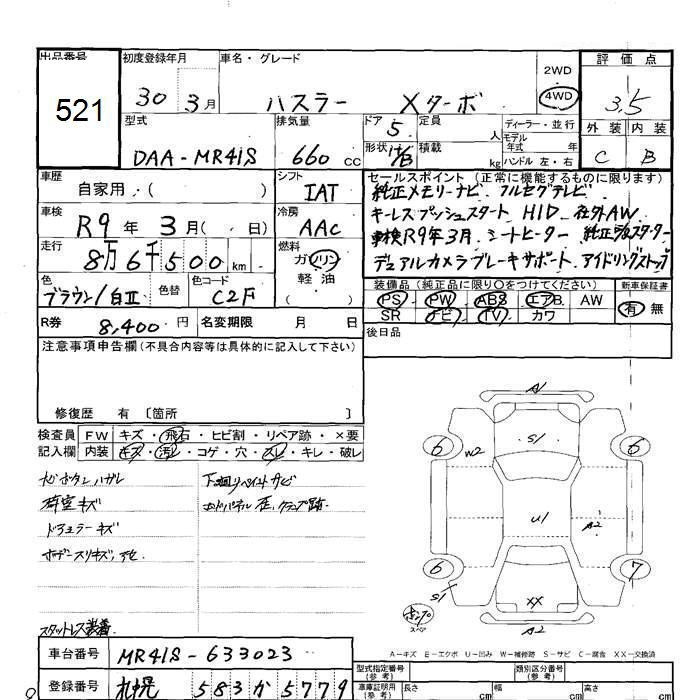 出品番号
521
初度登録年月
30 3月
車名・グレード
ハスラー Xターボ
2WD
4WD
評価点
3.5
型式
DAA-MR41S
排気量
660 cc
ドア 5
形状
定員 人
積載 kg
ディーラー・並行
モデル年式 年式
ハンドル 左・右
外装 内装
C B
車歴
自家用・( )
シフト
IAT
セールスポイント (正常に機能するものに限ります)
純正メモリーナビ フルセグテレビ
キーレスプッシュスタート HID 社外AW
車検R9年3月 シートヒーター 純正
デュアルカメラブレーキサポート アイドリングストップ
車検
R9年 3月( 日)
冷房
AAC
走行
8万6千500km
燃料
ガソリン
軽油
( )
色
ブラウン/白II
色替
色コード
C2F
装備品 (純正品に限り○をつけてください)
PS PW ABS エアB AW
SR ナビ TV カワ
新車保証書
有 無
R券 8,400円
名変期限 月 日
後日品
注意事項申告欄(不具合内容等は具体的に記入して下さい)
修復歴 有 〔箇所 〕
検査員記入欄
FW キズ・飛石・ヒビ割・リペア跡・×要
内装 キズ・汚レ・コゲ・穴・スレ・キレ・破レ
ナビボタンハガレ
荷室キズ
ドアミラーキズ
スタットレス装着
A1
S1
6 W2 6
U1 A2
6 7
S1
XX
スペア
A2
A-キズ E-エクボ U-凹み W-補修跡 S-サビ C-腐食 XX-交換済
車台番号
MR41S-633023
登録番号
札幌 583か5779
型式指定番号(参考)
類別区分番号(参考)
車庫証明用(参考)
長さ cm
幅 cm
高さ cm